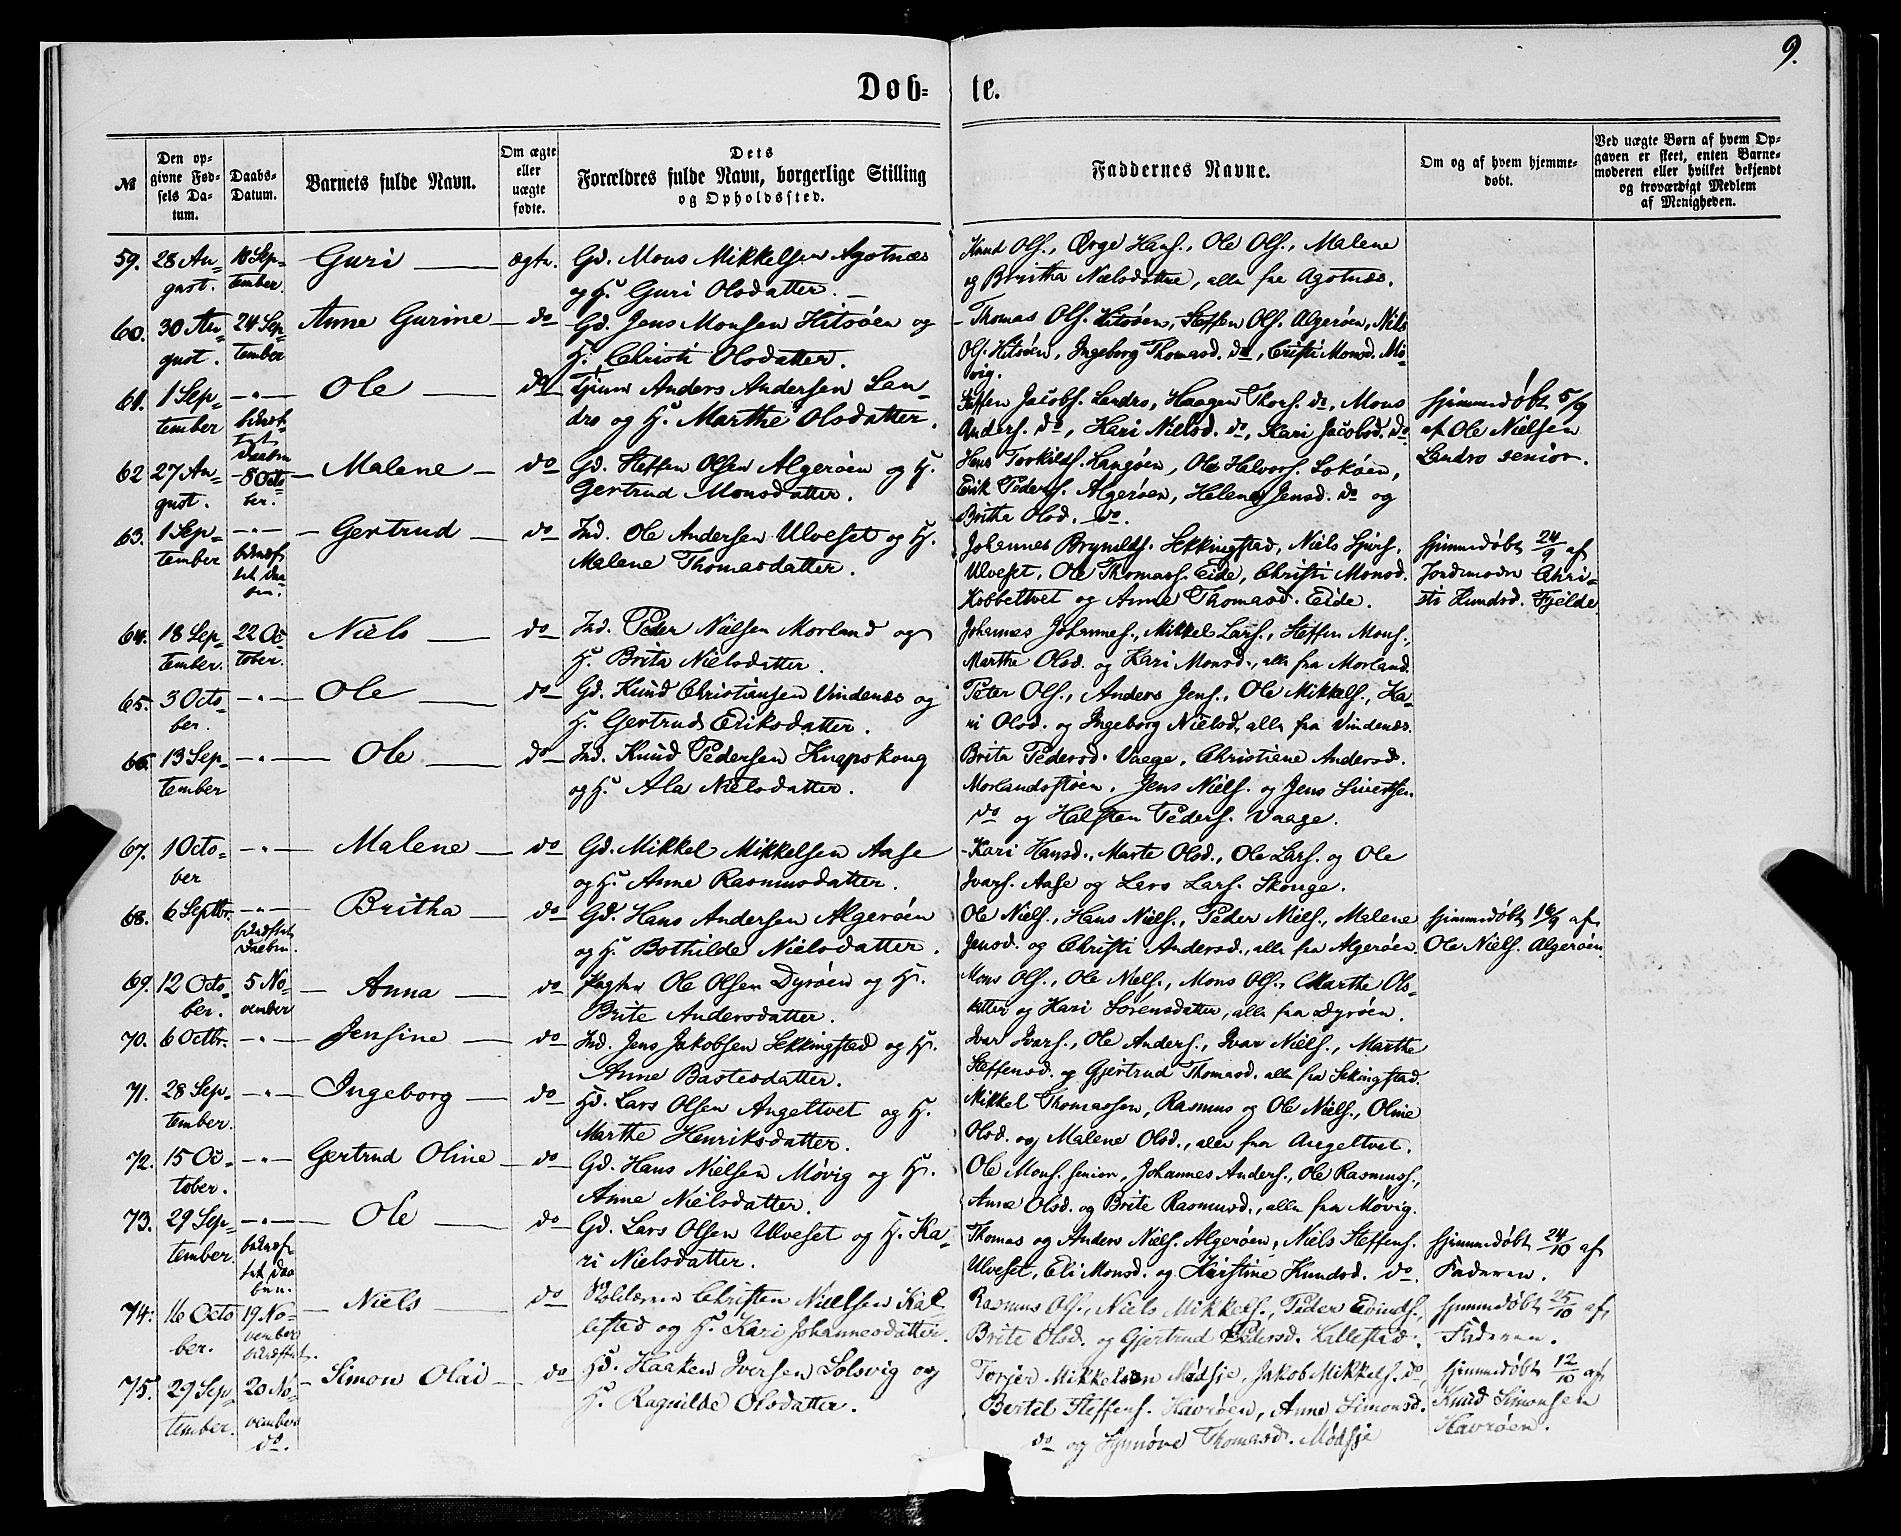 9.
Døb- te.
№
Den op-
givne Fød-
sels Da-
tum.
Daabs-
Datum.
Barnets fulde Navn.
Om ægte
eller
uægte
fødte.
Dets
Forældres fulde Navn, borgerlige Stilling
og Opholdssted.
Faddernes Navne.
Om og af hvem hjemme-
døbt.
Ved uægte Børn af hvem Op-
gaven er skeet, enten Barne-
moderen eller hvilket bekjendt
og troværdigt Medlem
af Menigheden.
59. 28 Au- 18 Sep- Guri ægte. Gd. Mons Mikkelsen Agotnæs Knud Ols., Ørge Hans., Ole Ols., Malene
gust. tember. og H. Guri Olsdatter. og Britha Nielsdattre, alle fra Agotnæs.
60. 30 Au- 24 Sep Anne Gurine do Gd. Jens Monsen Hitsøen og Thomas Ols. Hitsøen, Steffen Ols. Algerøen, Nils
gust. tember H. Christi Olsdatter. Ols. Hitsøen, Ingeborg Thomasd. do, Cristi Monsd. Mø-
vig.
61. 1 Sep- -"- Ole do Anders Andersen Lan- Steffen Jacobs. Landro, Haagen Thors. do, Mons hjemmedøbt 5/9
tember dro og H. Marthe Olsdatter. Anders. do, Kari Nielsd. do, Kari Jacobsd. do af Ole Nielsen
Landro senior.
62 27 Au- 8 Octo- Malene do Gd. Steffen Olsen Algerøen og H. Hans Terkilds. Langøen, Ole Halvors. Lokøen,
gust. ber. Gertrud Monsdatter. Erik Peders. Algerøen, Helene Jensd. do og
Britha Olsd. do.
63. 1 Sep- -"- Gertrud do Ind. Ole Andersen Ulveset og H. Johannes Brynilds. Sekkingstad, Niels hjemmedøbt 24/9 af
tember Malene Thomasdatter. Ulveset, Ole Thomass. Eide, Christi Monsd. Jordmoder Chri-
Kobbeltvet og Anne Thomasd. Eide. sti Knudsd. Fjelde
64. 18 Sep 22 Oc Niels do Ind. Peder Nielsen Morland og Johannes Johannes., Mikkel Lars., Steffen Mons.,
tember. tober. H. Brita Nielsdatter. Marthe Olsd. og Kari Monsd., alle fra Morland.
65. 3 Octo- -"- Ole do Gd. Knud Christiansen Vindenæs og Peter Ols., Anders Jens., Ole Mikkels., Ka-
ber. H. Gertrud Eriksdatter. ri Olsd. og Ingeborg Nielsd., alle fra Vindenæs.
66. 13 Sep- -"- Ole do Ind. Knud Pedersen Knapskong Brita Pedersd. Vaage, Christiene Andersd.
tember og H. Ala Nielsdatter. Morlandsstøen, Jens Niels. og Jens Sivertsen
do og Halsten Peders. Vaage.
67. 1 Octo- -"- Malene do Gd. Mikkel Mikkelsen Aase Kari Hansd., Marte Olsd., Ole Lars. og Ole
ber og H. Anne Rasmusdatter. Ivars. Aase og Lars Lars. Skoge.
68. 6 Septbr. -"- Britha do Gd. Hans Andersen Algerøen Ole Niels., Hans Niels., Peder Niels., Malene hjemmedøbt 16/9 af
og H. Bothilde Nielsdatter. Jensd. og Christi Andersd., alle fra Algerøen. Ole Niels. Algerøen.
69. 12 Octo- 5 No- Anna do Pagter Ole Olsen Dyrøen og H. Mons Ols., Ole Niels., Mons Ols., Marthe Ols-
ber. vember Brite Andersdatter. datter og Kari Sørensdatter, alle fra Dyrøen.
70. 6 Octbr. -"- Jensine do Ind. Jens Jakobsen Sekkingstad og H. Ivar Ivars., Ole Anders., Ivar Niels., Marthe
Anne Bastesdatter. Steffensd. og Gjertrud Thomasd. alle fra Sekingstad.
71. 28 Sep- -"- Ingeborg do Gd. Lars Olsen Angeltvet og H. Mikkel Thomassen, Rasmus og Ole Niels., Oline
tember. Marthe Henriksdatter. Olsd. og Malene Olsd., alle fra Angeltvet.
72. 15 Oc- -"- Gertrud Oline do Gd. Hans Nielsen Møvig og H. Ole Mons. senior, Johannes Anders., Ole Rasmuss.,
tober. Anne Nielsdatter. Anne Olsd. og Brite Rasmusd., alle fra Møvig.
73. 29 Sep- -"- Ole do Gd. Lars Olsen Ulveset og H. Ka- Thomas og Anders Niels. Algerøen, Niels Steffens. hjemmedøbt 24/10 af
tember. ri Nielsdatter. Ulveset, Eli Monsd. og Kristine Knudsd. do. Faderen.
74. 16 Octo 19 No- Niels do Christen Nielsen Kal Rasmus Ols., Niels Mikkels., Peder Eivinds., hjemmedøbt 25/10 af
ber. vember lestad og H. Kari Johannesdatter. Brite Olsd. og Gjertrud Pedersd. Kallestad. Faderen.
75. 29 Sep 20 No- Simon Olai do Gd. Haaken Iversen Solsvig og Torjer Mikkelsen Mødsje, Jakob Mikkels. do, hjemmedøbt 12/10 af
tember. vember H. Ragnilde Olsdatter. Bertel Steffens. Havrøen, Anne Simonsd. Knud Simonsen
do. do og Synnøve Thomasd. Mødsje Havrøen.